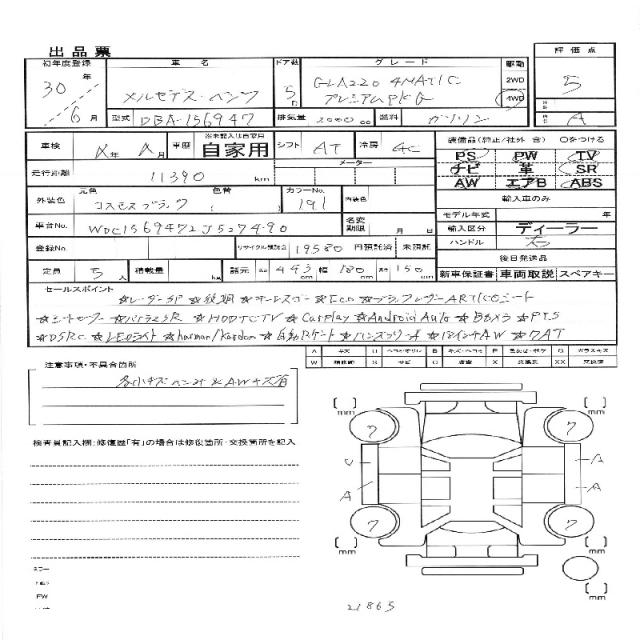 出品票
初年度登録 車名 ドア数 グレード 駆動 評価点
30年 メルセデス・ベンツ 5D GLA220 4MATIC 2WD 5
6月 プレミアムPKG 4WD
型式 DBA-156947 排気量 2000 cc 燃料 ガソリン A
車検 年 月 車歴 ※未記入は自家用 自家用 シフト AT 冷房 AC 装備品(純正/社外 含) ○をつける
PS PW TV
走行距離 11390 km メーター ナビ 革 SR
AW エアB ABS
外装色 元色 コスモスブラック 色替 カラーNo. 191 内装色 輸入車のみ
モデル年式 年
車台No. WDC1569472J527490 名変期限 月 日 輸入区分 ディーラー
ハンドル 右
登録No. リサイクル預託金 19580 円預託済 未預託 後日発送品
定員 5人 積載量 kg 諸元 長さ 443cm 幅 180cm 高さ 150cm 新車保証書 車両取説 スペアキー
セールスポイント
☆レーダーSP ☆後期 ☆キーレスゴー ☆Eco ☆ブラックレザーARTICOシート
☆シートヒーター ☆パノラマSR ☆HDDTCTV ☆CarPlay ☆Android Auto ☆Bカメラ ☆PTS
☆DSRC ☆LEDライト ☆harman/kardon ☆自動Rゲート ☆ハンズフリー ☆18インチAW ☆7AT
A キズ U B キズ・ヘコミ P G ガラスキズ
W S サビ C 腐食 X XX 交換済
注意事項・不具合箇所
各小キズヘコミ&AWキズ有
[ ]mm [ ]mm
7 7
検査員記入欄:修復歴「有」の場合は修復箇所・交換箇所を記入
U A
A A
7 7
[ ]mm [ ]mm
[ ]mm
21865